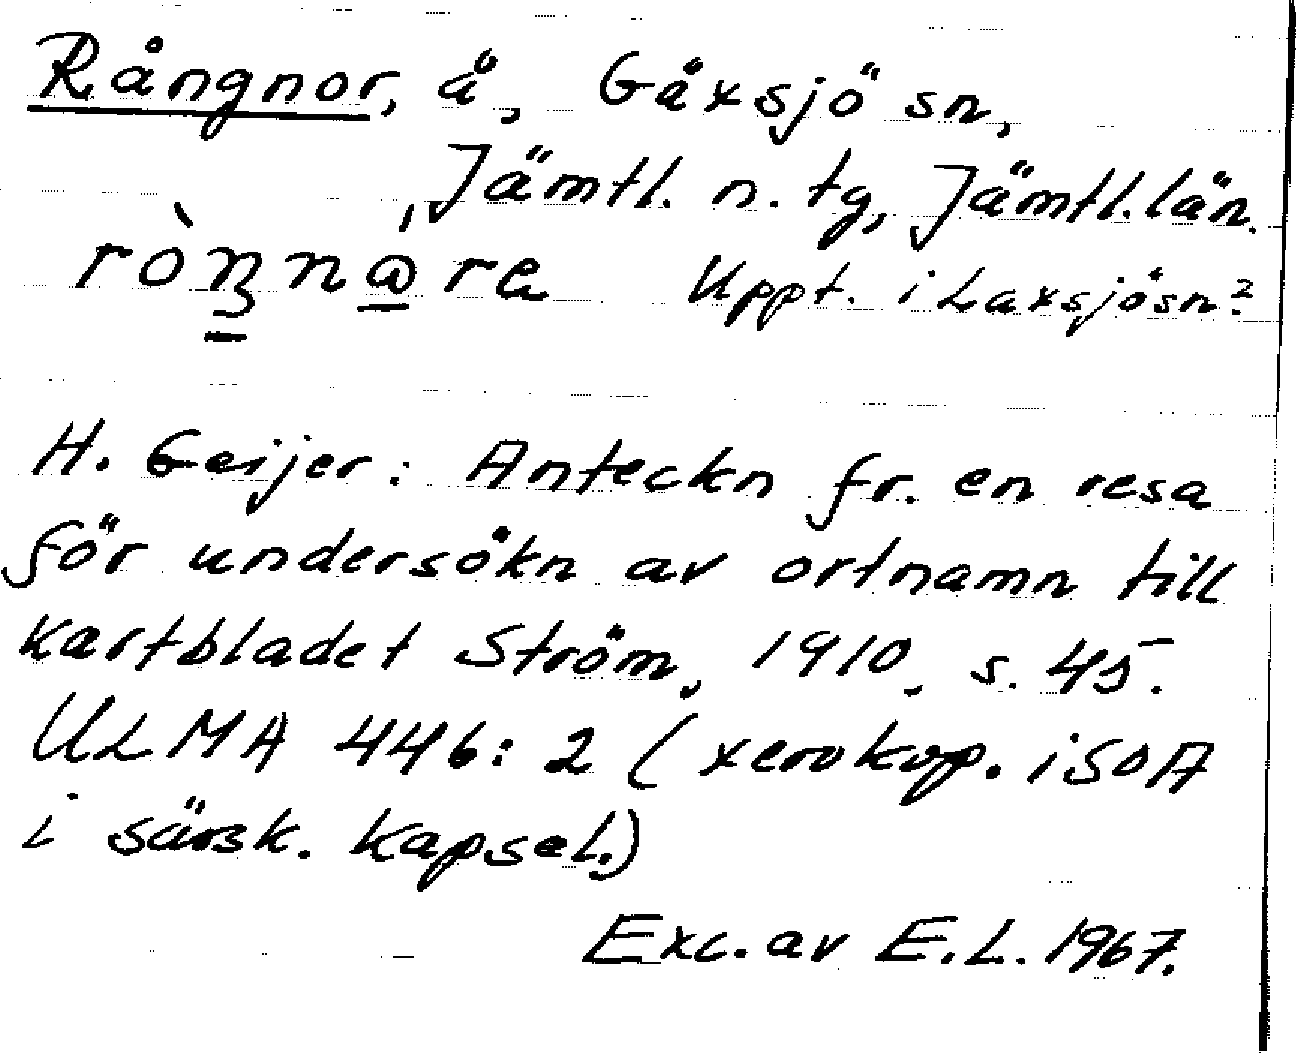 Rångnor, å, Gåxsjö sn,
Jämtl. n. tg, Jämtl. län.
Uppt. i Laxsjö sn?
H. Geijer: Anteckn fr. en resa
för undersökn av ortnamn till
kartbladet Ström, 1910, s. 45.
ULMA 446:2 (xerokop. i SOA
i särsk. kapsel.)
Exc. av E.L. 1967.